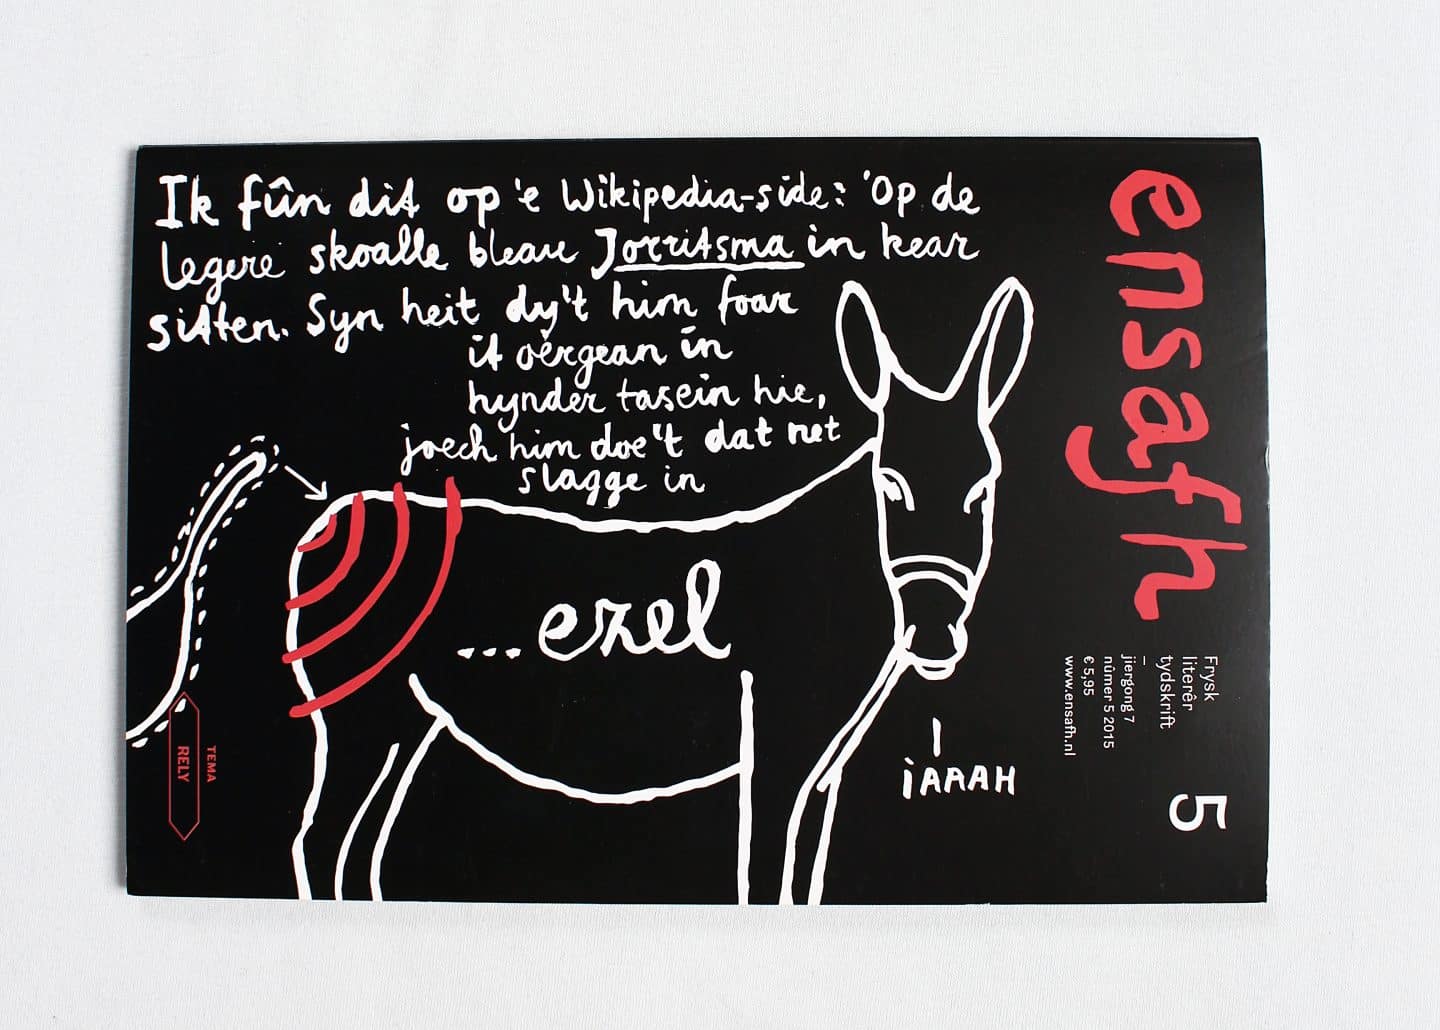 Ik fûn dit op 'e Wikipedia-side: 'Op de
legere skoalle bleau Jorritsma in kear
sitten. Syn heit dy't him foar
it oergean in
hynder tasein hie,
joech him doe't dat net
slagge in
...ezel
iAAAH
ensafh
Frysk
literêr
tydskrift
–
jiergong 7
nûmer 5 2015
€ 5,95
www.ensafh.nl
5
TEMA
RELY